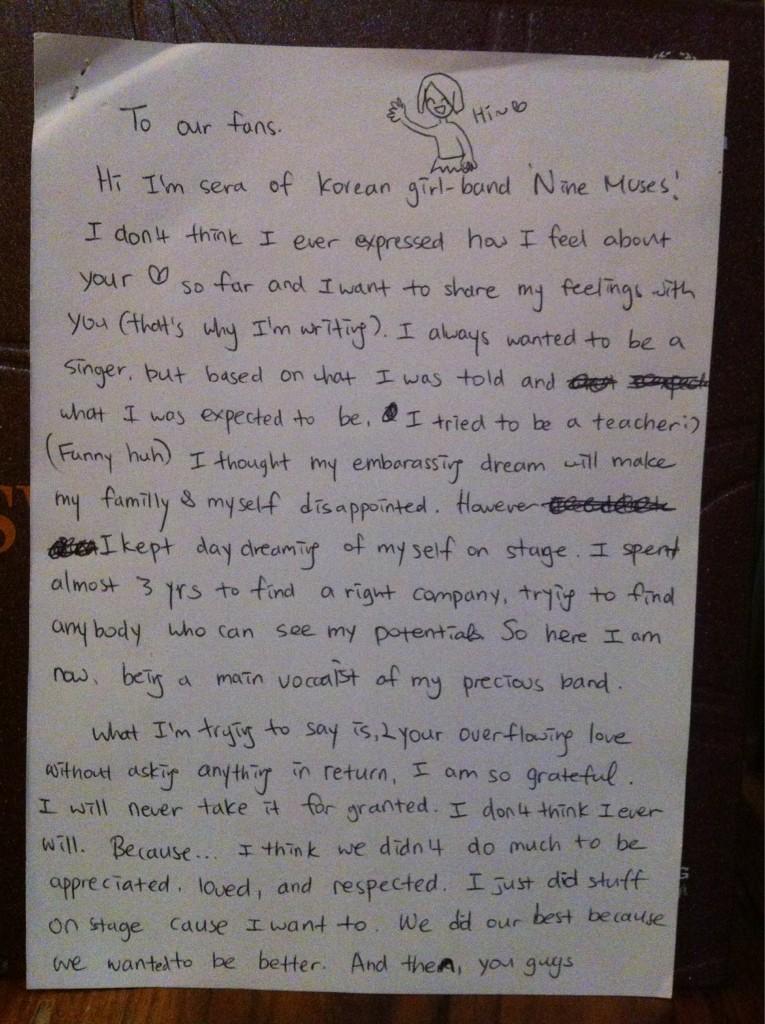 To our fans.
Hi~♡
Hi I'm sera of Korean girl-band 'Nine Muses'!
I don't think I ever expressed how I feel about
your ♡ so far and I want to share my feelings with
you (that's why I'm writing). I always wanted to be a
singer, but based on what I was told and
what I was expected to be, I tried to be a teacher:)
(Funny huh) I thought my embarassing dream will make
my familly & myself disappointed. However
I kept day dreaming of myself on stage. I spent
almost 3 yrs to find a right company, trying to find
anybody who can see my potential. So here I am
now, being a main voccalist of my precious band.
What I'm trying to say is, your overflowing love
without asking anything in return, I am so grateful.
I will never take it for granted. I don't think I ever
will. Because... I think we didn't do much to be
appreciated, loved, and respected. I just did stuff
on stage cause I want to. We did our best because
we wanted to be better. And then, you guys